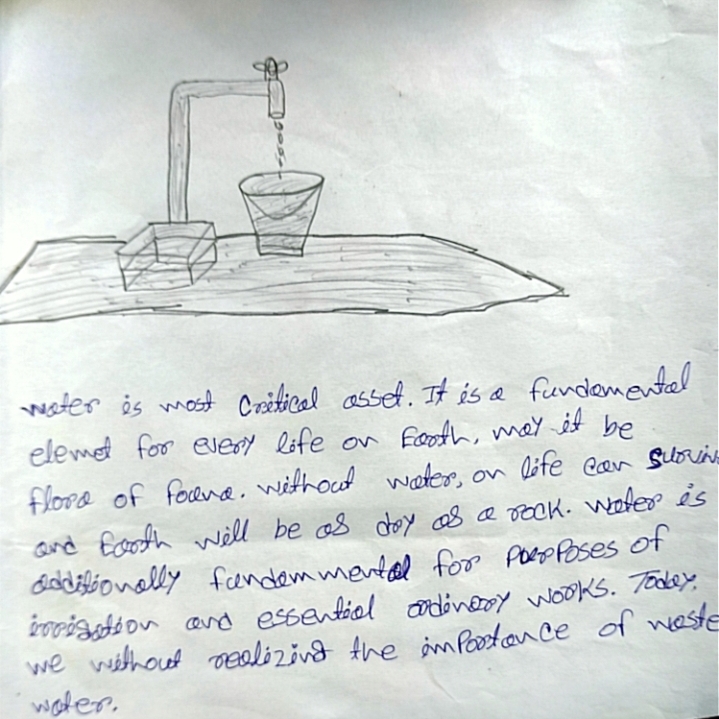 water is most Critical asset. It is a fundamental
elemet for every life on Earth, may it be
flora of foana. without water, on life can surviv
and Earth will be as dry as a rock. Water is
additionally fundammental for Purposes of
irrigation and essential ordinary works. Today,
we without realizing the importance of waste
water.